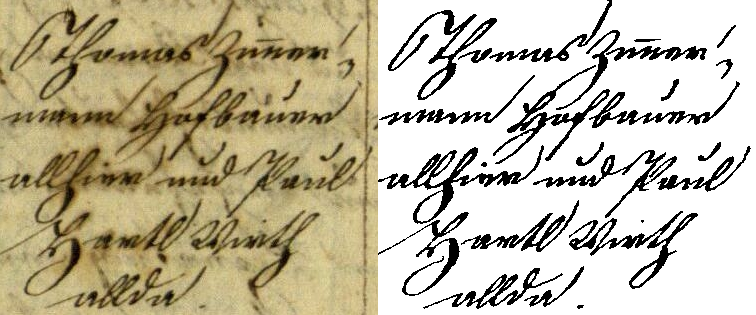 Thomas Zim̅er-
mann Hofbauer
allhier und Paul
Hartl Wirth
allda.
Thomas Zim̅er-
mann Hofbauer
allhier und Paul
Hartl Wirth
allda.